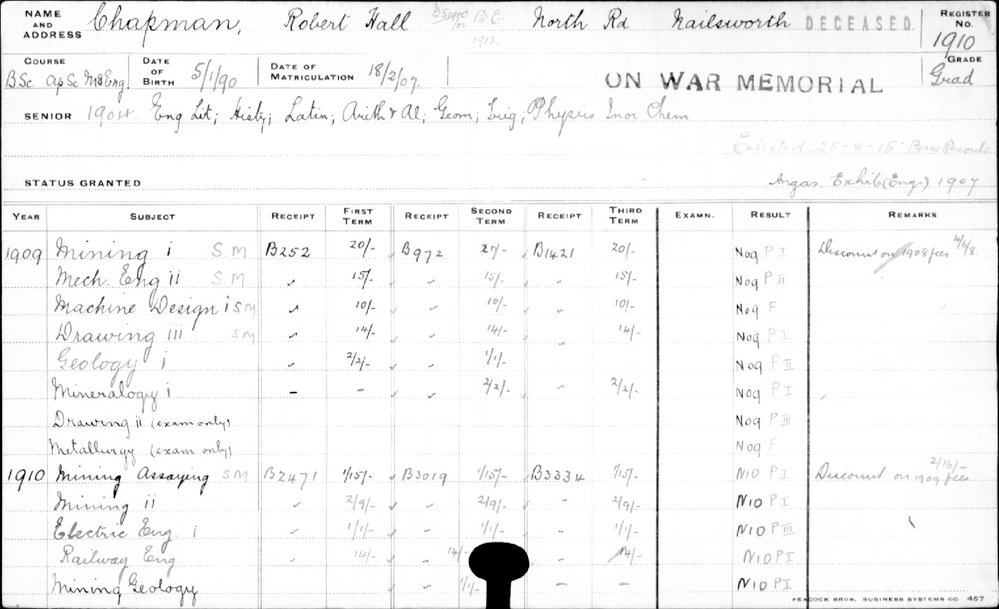 NAME AND ADDRESS Chapman, Robert Hall B.E. 1913. North Rd Nailsworth DECEASED REGISTER No. 1910
COURSE BSc ApSc M&Eng. DATE OF BIRTH 5/1/90 DATE OF MATRICULATION 18/2/07. ON WAR MEMORIAL GRADE Grad
SENIOR 1904. Eng Lit; Histy; Latin; Arith & Al; Geom; Trig; Physics Inor Chem
Enlisted 25-8-15 Base Records
STATUS GRANTED Angas. Exhib (Eng) 1907
YEAR SUBJECT RECEIPT FIRST TERM RECEIPT SECOND TERM RECEIPT THIRD TERM EXAMN. RESULT REMARKS
1909 Mining i SM B252 20/- B972 B1421 20/- N09 P I Discount on 1908 fees
Mech. Eng ii SM 15/- 15/- 15/- N09 P II
Machine Design i SM 10/- 10/- 10/- N09 F
Drawing iii SM 14/- 14/- 14/- N09 P I
Geology i 2/2/- 1/1/- N09 P II
Mineralogy i - - 2/2/- 2/2/- N09 P I
Drawing ii (exam only) N09 P III
Metallurgy (exam only) N09 F
1910 Mining Assaying SM B2471 1/15/- B3019 1/15/- B3334 1/15/- N10 P I Discount on 1909 fees 2/16/-
Mining ii 2/9/- 2/9/- 2/9/- N10 P I
Electric Eng. i 1/1/- 1/1/- 1/1/- N10 P III
Railway Eng 14/- 14/- 14/- N10 P I
Mining Geology 1/1/- N10 P I
PEACOCK BROS. BUSINESS SYSTEMS CO. 457